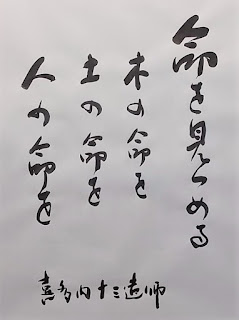 命を見つめる
木の命を
土の命を
人の命を
喜多内十三造師